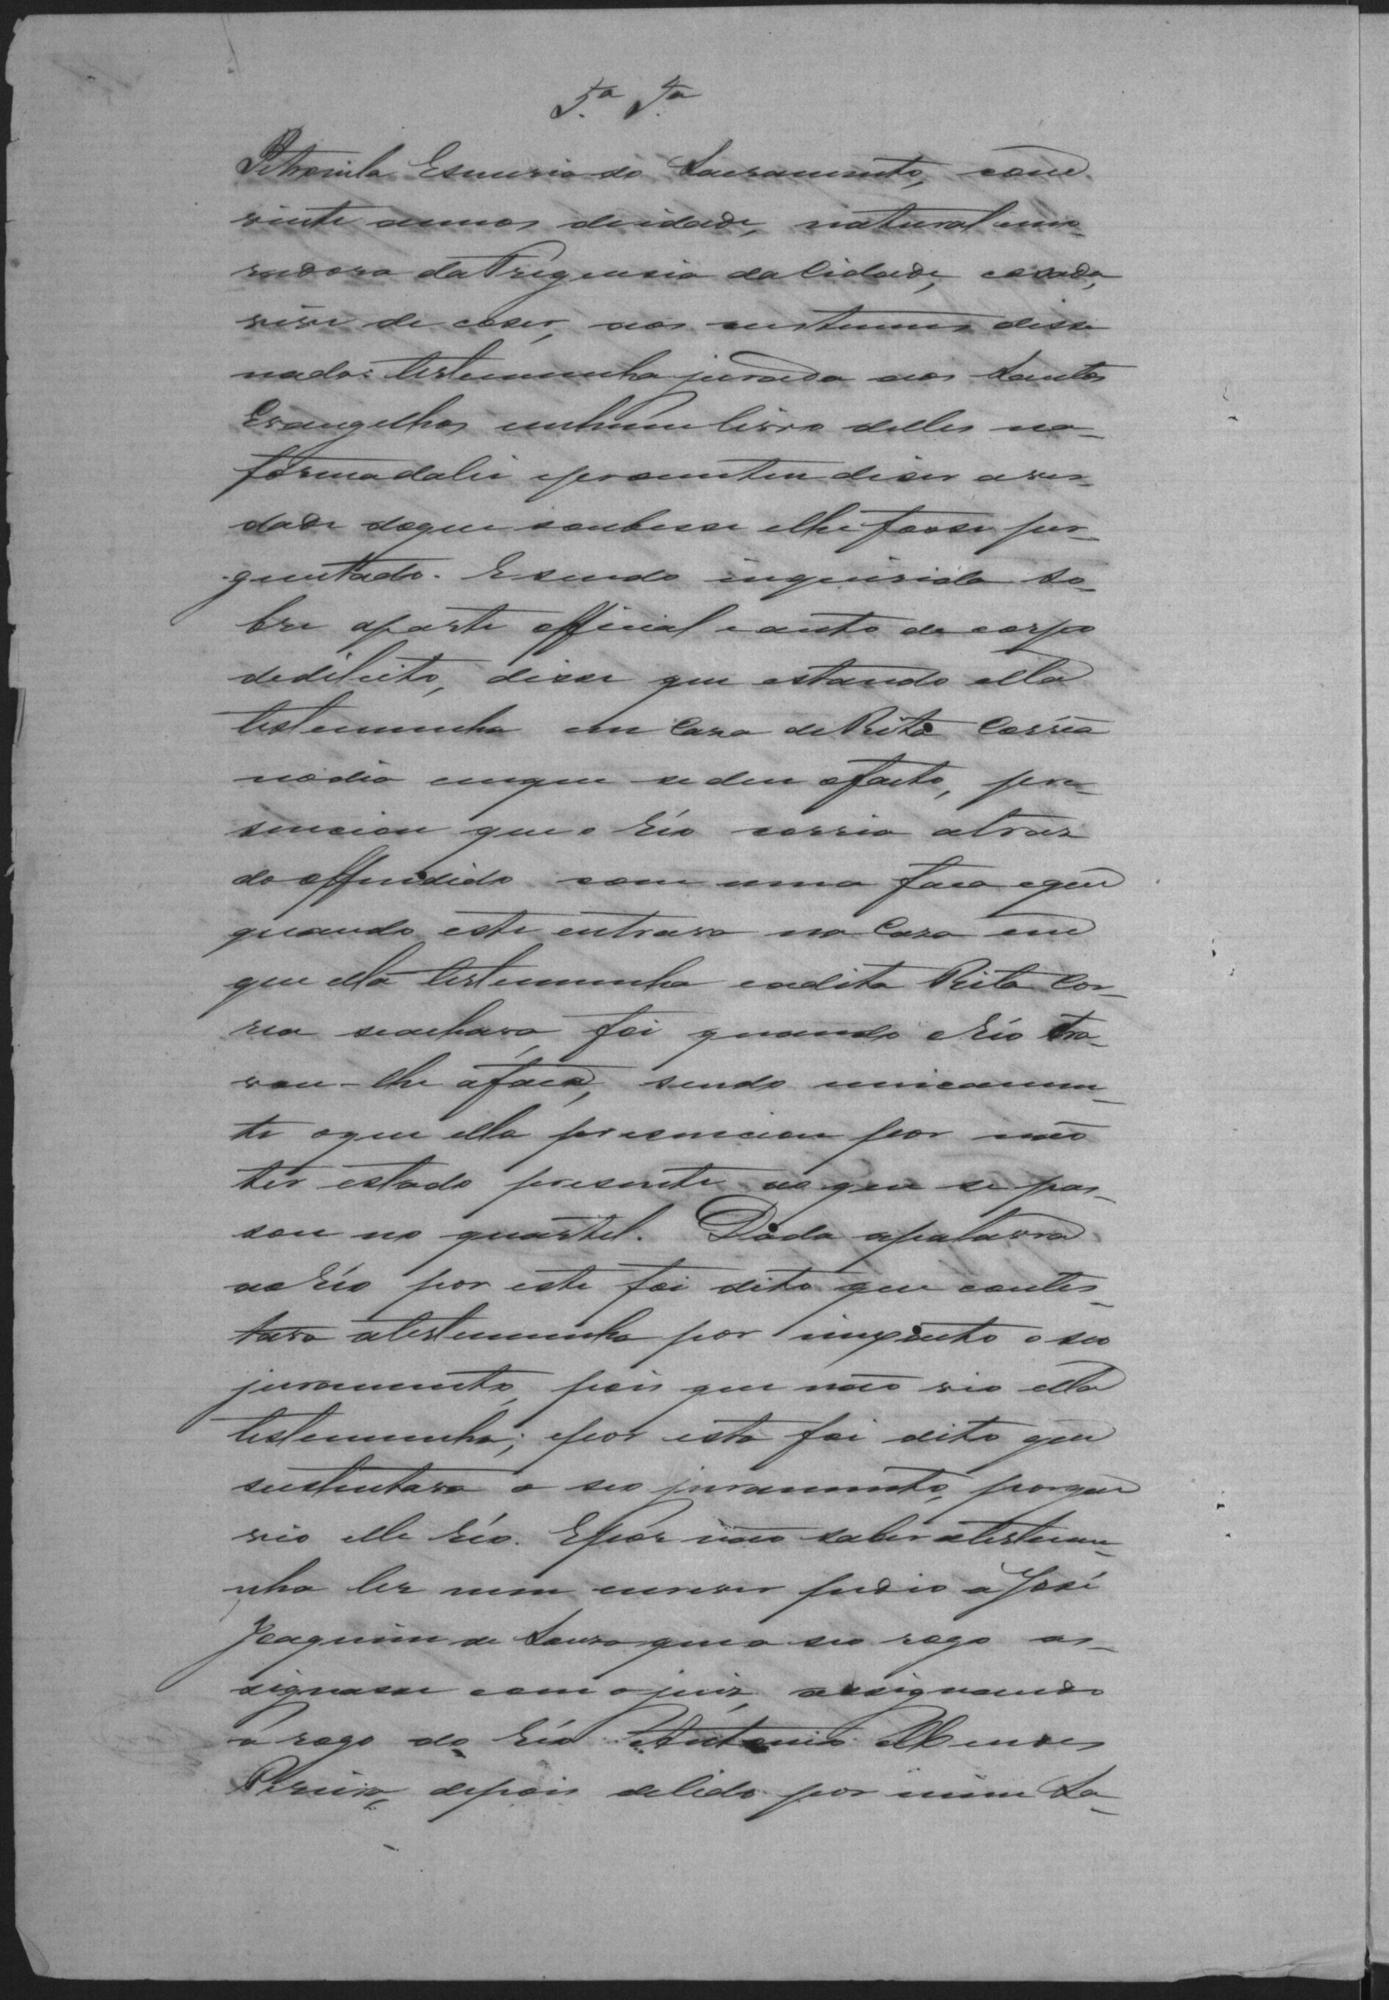 5.ª T.ª
Petronila Esmeria do Sacramento, com
vinte annos de idade, natural emo-
radora da Freguesia da Cidade, casada,
vive de coser, aos custumes disse
nada: testemunha jurada aos Santos
Evangelhos em hum livro delles na
fórma da lei eprometteu diser aver-
dade doque soubesse elhe fosse per-
guntado. Esendo inquirida so-
bre aparte official eauto de corpo
dedelicto, disse que estando ella
testemunha em Casa de Rita Corrêa
nodia emque sedeu ofacto, pre-
senciou que o Réo corria atraz
do offendido com uma faca eque
quando este entrava na Casa em
que ella testemunha eadita Rita Cor-
rea seachava, foi quando o Réo cra-
vou-lhe afaca, sendo unicamen-
te oque ella presenciou por não
ter estado presente ao que se pas-
sou no quartel. Dada apalavra
ao Réo por este foi dito que contes-
tava atestemunha por inexacto o seo
juramento, pois que não vio ella
testemunha; epor esta foi dito que
sustentava o seo juramento, porque
vio elle Réo. Epor não saber atestemu-
nha ler nem escrever pedio a José
Joaquim de Souza que a seo rogo as-
signasse com o juiz, assignando
á rogo do Réo Antonio Mendes
Pereira, depois delido por mim Sa-